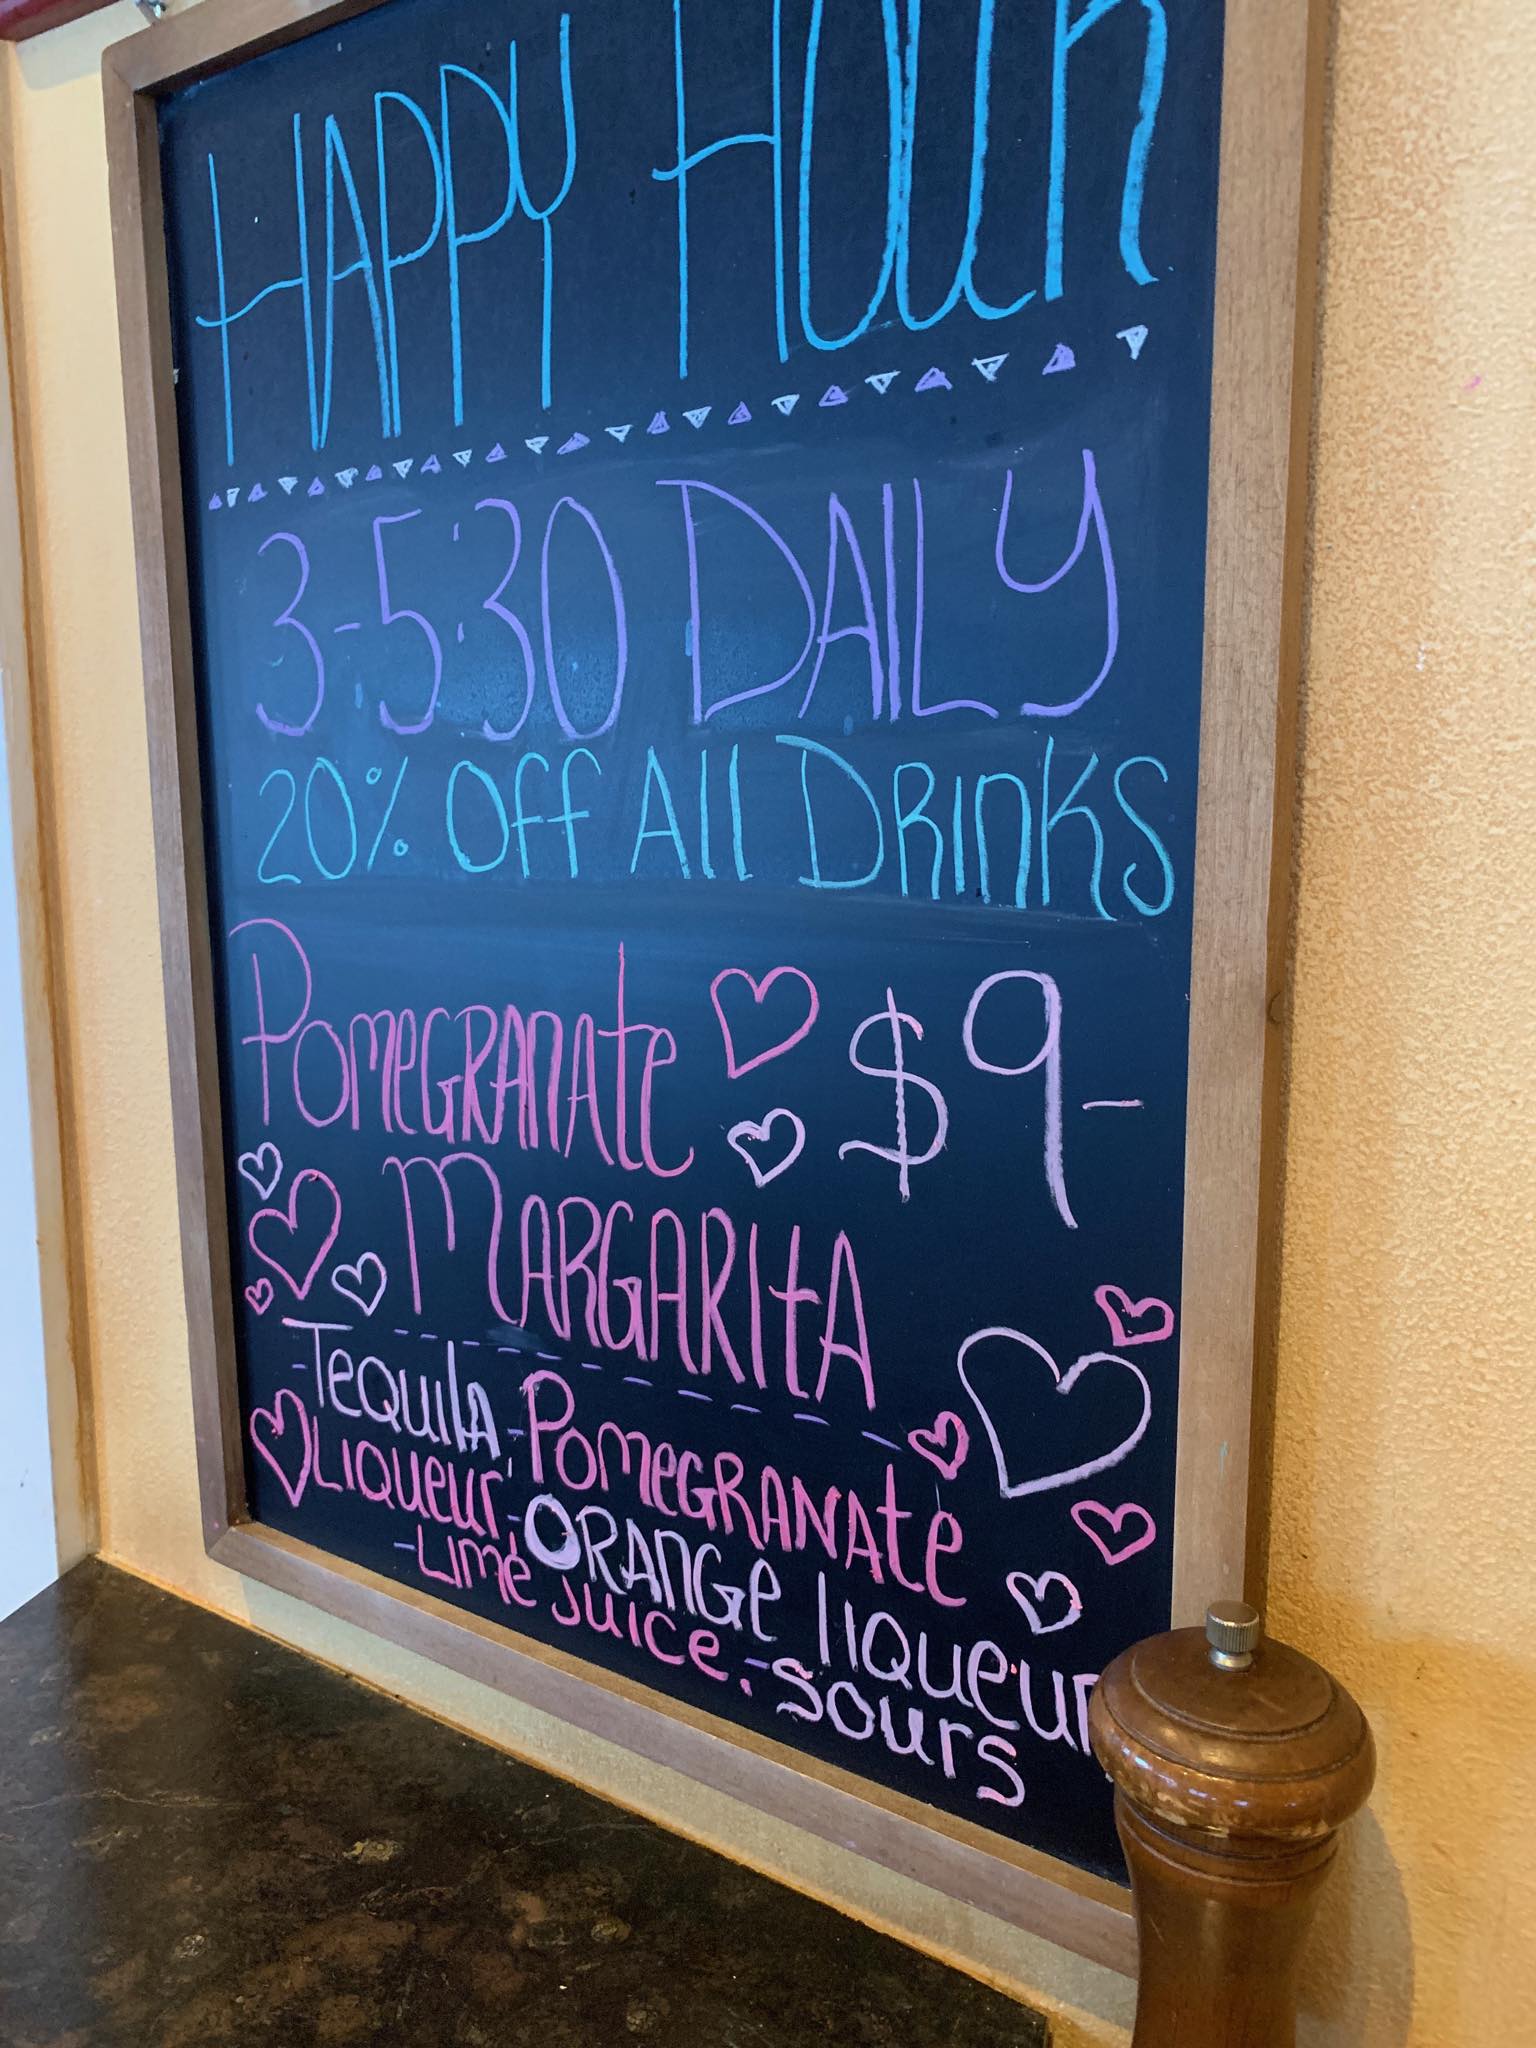 HAPPY HOUR
3-5:30 DAILY
20% Off All DRinKS
PomeGRAnAte $9-
MARGARItA
-TEQUilA, -PomeGRANAte
LIQUEUr, -ORAnGe lIQUEUr
-Lime JUICE. -Sours